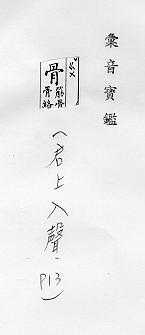 彙音寶鑑
骨
筋骨
骨骼
(君上入聲
P13)